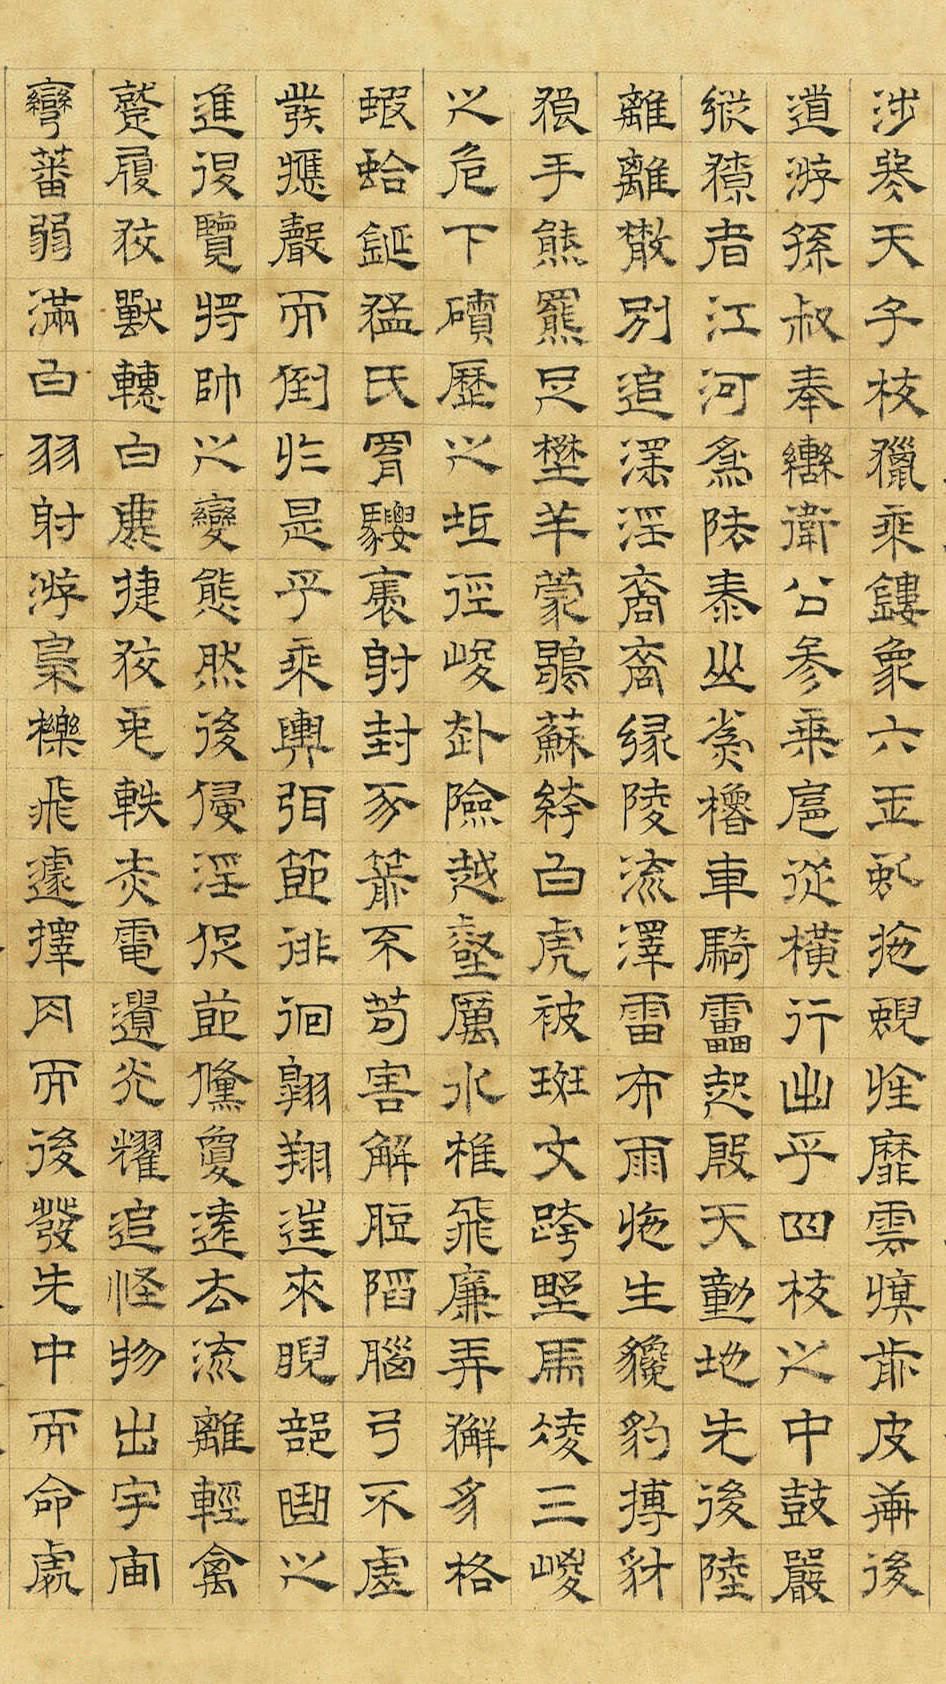 涉冬天子校獵乘鏤象六玉虯拖蜺旌靡雲旗前皮軒後
道游孫叔奉轡衛公參乘扈從橫行出乎四校之中鼓嚴
縱獠者江河為阹泰山為櫓車騎靁起殷天動地先後陸
離離散別追深淫裔裔緣陵流澤雷布雨施生貔豹搏豺
狼手熊羆足壄羊蒙鶡蘇絝白虎被斑文跨壄馬凌三嵕
之危下磧歷之坻徑峻赴險越壑厲水椎飛廉弄獬豸格
蝦蛤鋋猛氏罥騕褭射封豕箭不苟害解脰陷腦弓不虛
發應聲而倒於是乎乘輿弭節徘徊翱翔往來睨部曲之
進退覽將帥之變態然後侵淫促節儵敻遠去流離輕禽
蹵履狡獸轊白鹿捷狡兔軼赤電遺光耀追怪物出宇宙
彎蕃弱滿白羽射游梟櫟飛遽擇肉而後發先中而命處